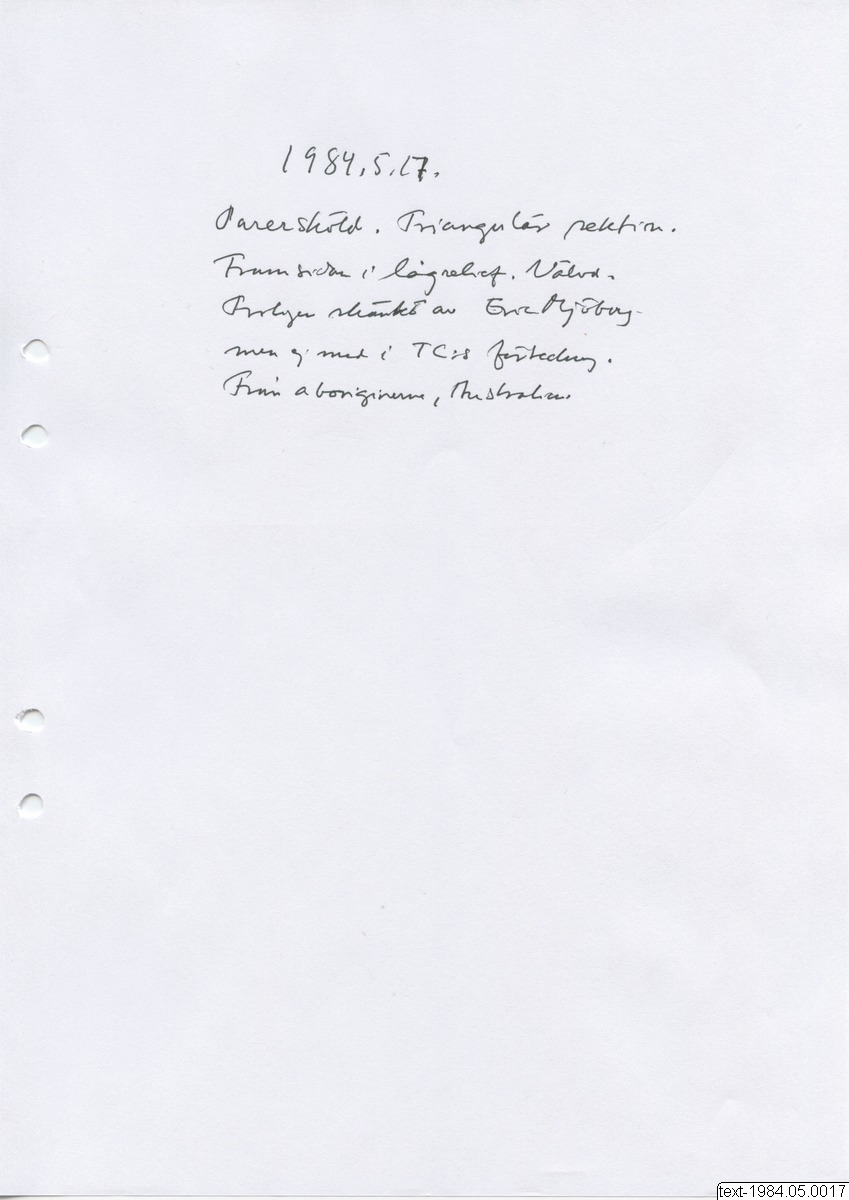 1984.5.17.
Parersköld. Triangulär sektion.
Framsidan i lågrelief. Välvd.
Troligen skänkt av Eric Mjöberg
men ej med i TC:s förteckning.
Från aboriginerna, Australien.
text-1984.05.0017